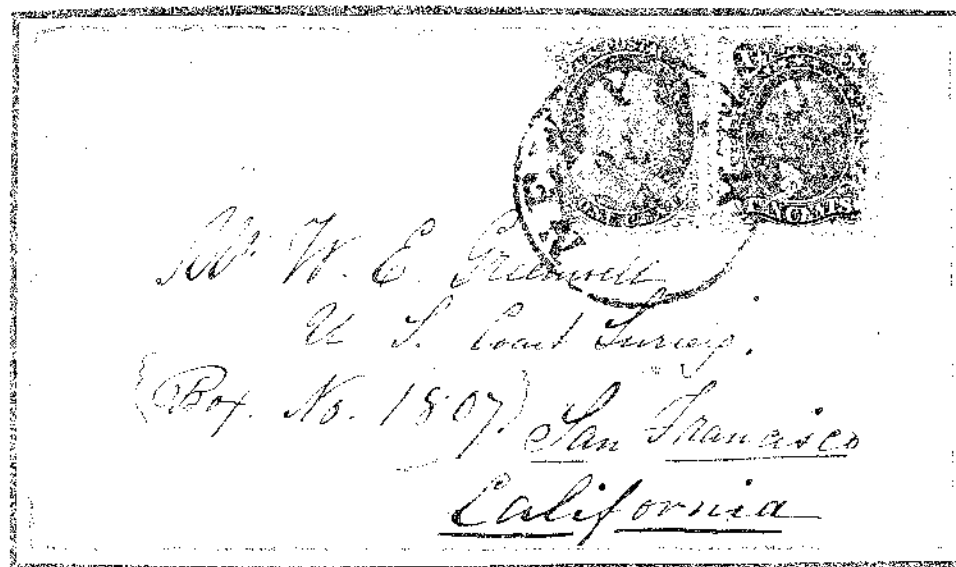 X X
TEN CENTS.
Mr. W. E. Greenwell
U S. Coast Survey.
(Box. No. 1807.) San Francisco
California